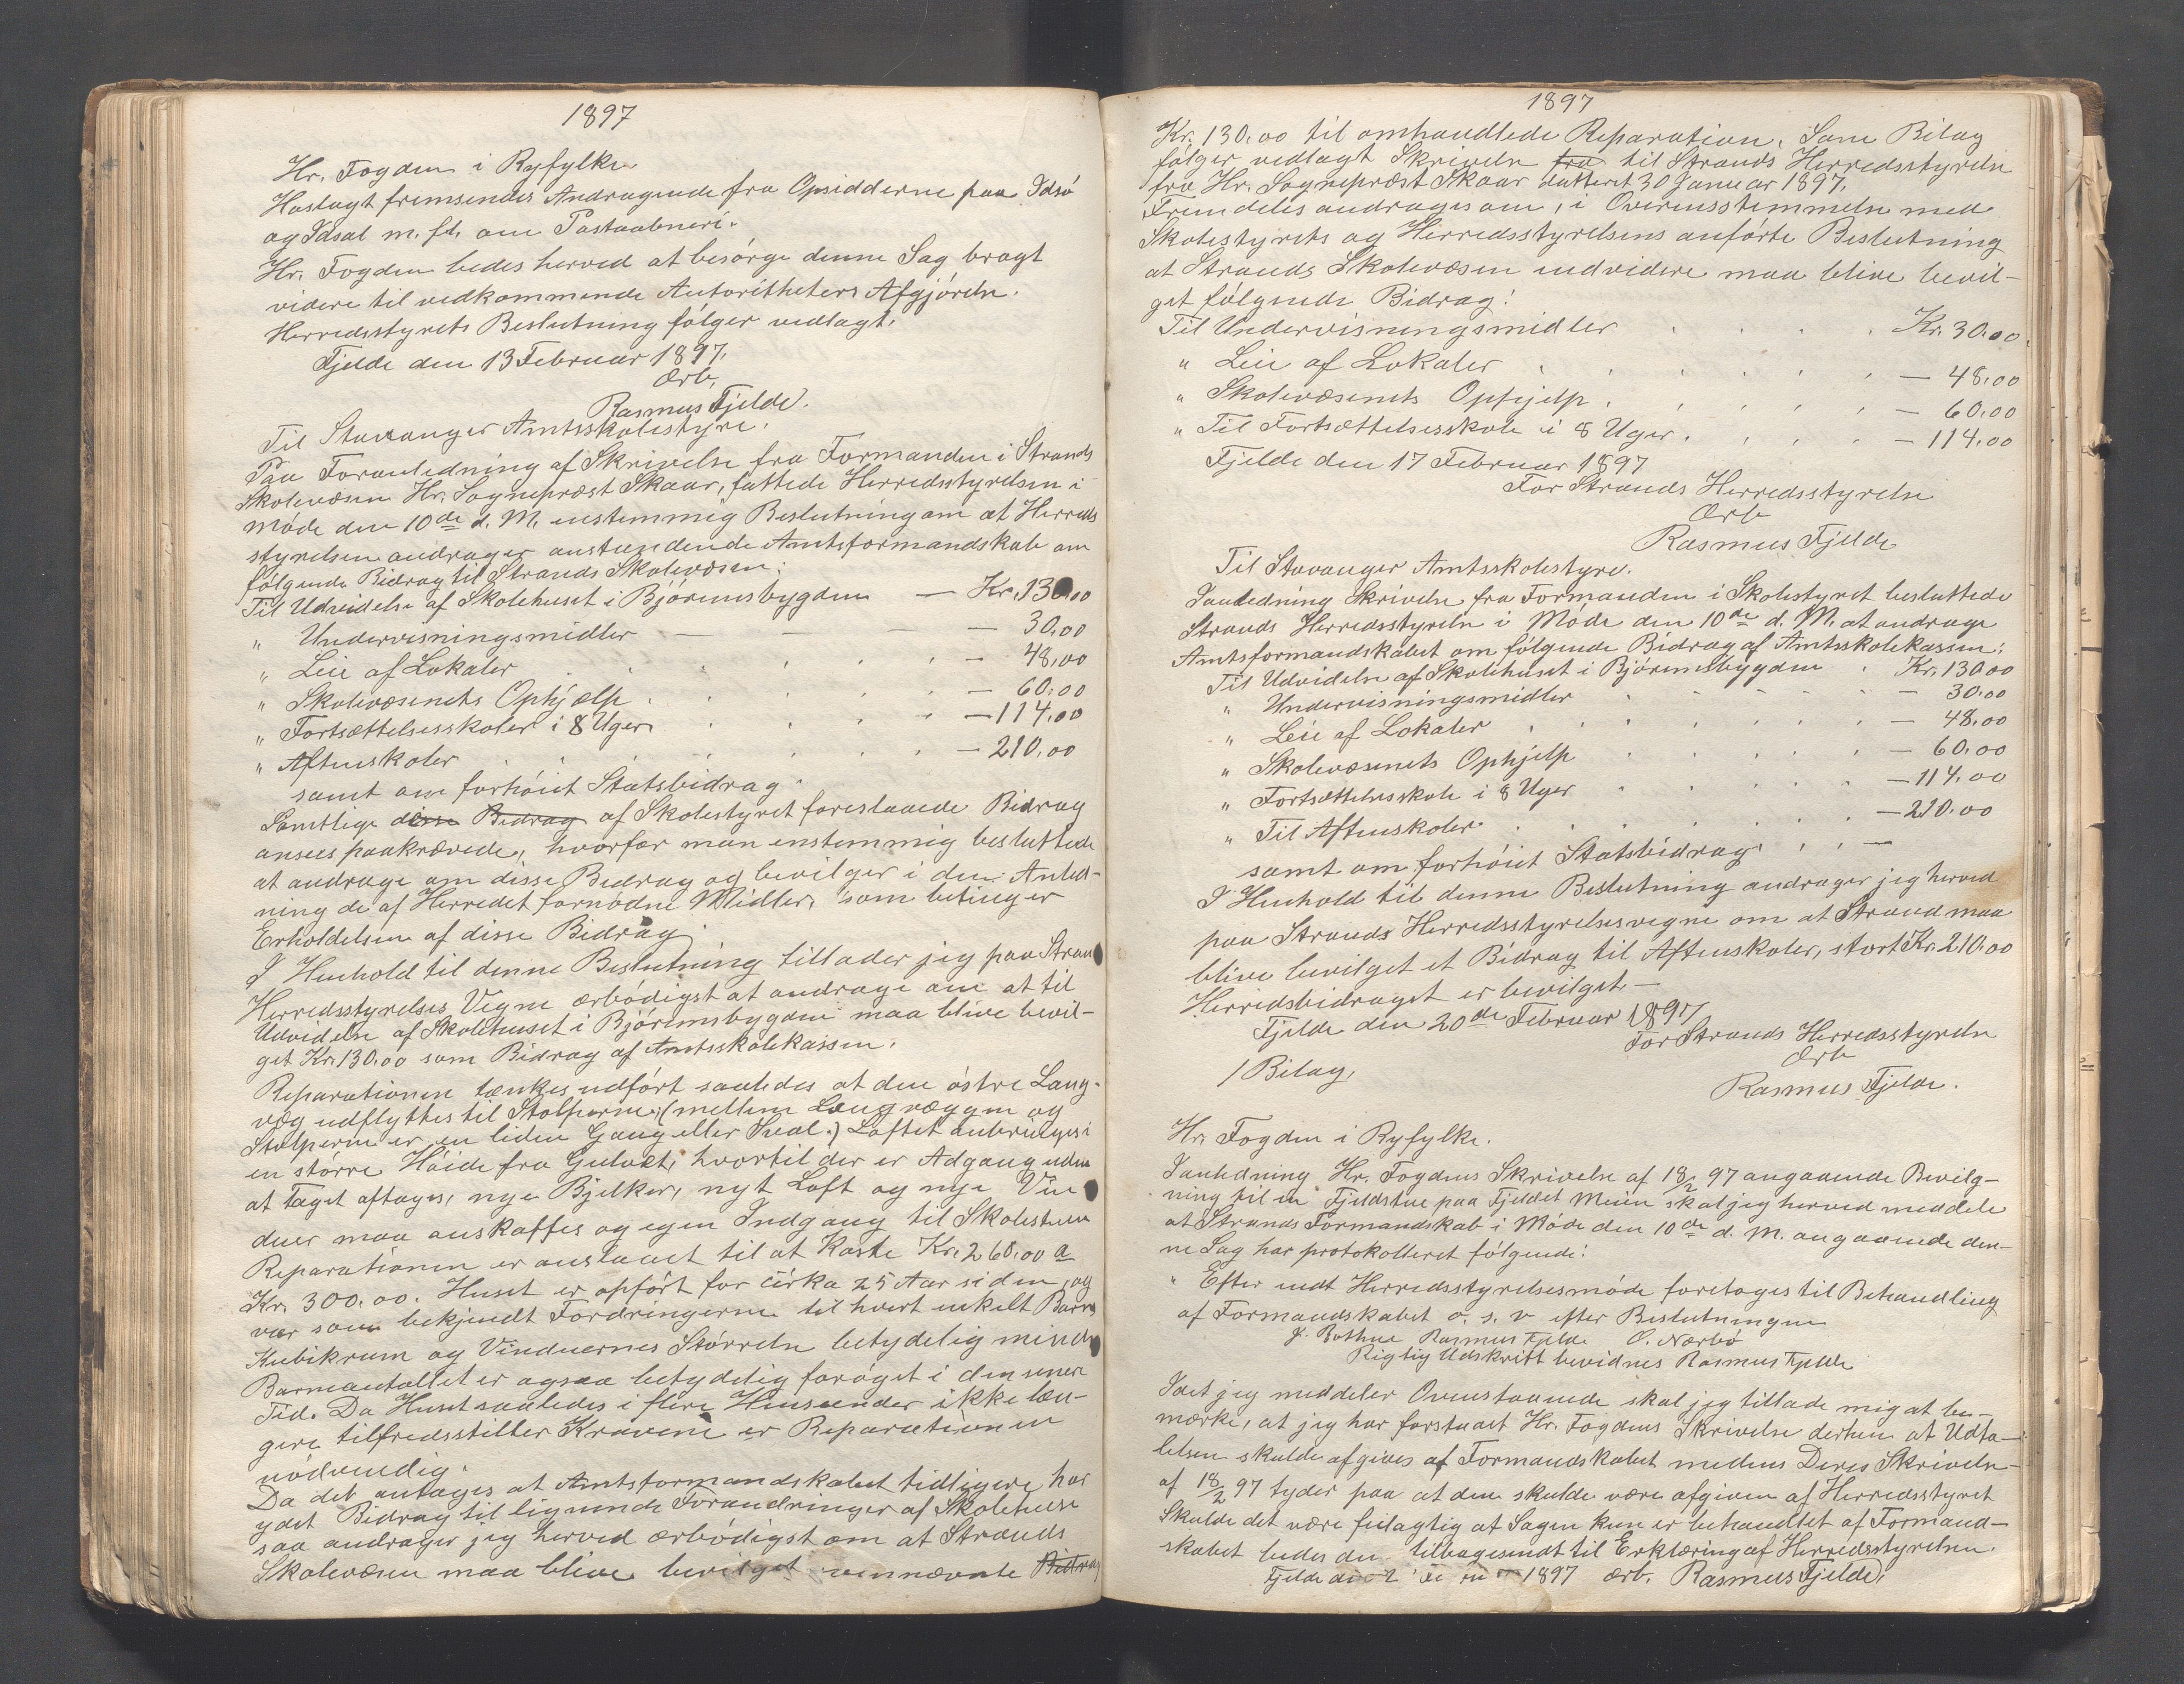 1897
Hr. Fogden i Ryfylke.
Hoslagt fremsendes Andragende fra Opsidderne paa Idsö
og Idsal m. fl. om Postaabneri.
Hr. Fogden bedes herved at besörge denne Sag bragt
videre til vedkommende Autoritheters Afgjörelse.
Herredsstyrets Beslutning fölger vedlagt.
Fjelde den 13 Februar 1897.
Ærb.
Rasmus Fjelde.
Til Stavanger Amtsskolestyre.
Paa Foranledning af Skrivelse fra Formanden i Strands
Skolevæsen Hr. Sognepræst Skaar, fattede Herredsstyrelsen i
Möde den 10de d. M. enstemmig Beslutning om at Herreds
styrelsen andrager anstundende Amtsformandskab om
fölgende Bidrag til Strands Skolevæsen:
Til Udvidelse af Skolehuset i Björeimsbygden — Kr. 130,00
" Undervisningsmidler — — — — 30,00
" Leie af Lokaler . . . . — 48,00
" Skolevæsenets Ophjælp . . . . — 60,00
" Fortsættelsesskoler i 8 Uger. . . . — 114,00
" Aftenskoler . . . . — 210,00
samt om forhöiet Statsbidrag.
Samtlige disse Bidrag af Skolestyret foreslaaede Bidrag
ansees paakrævede, hvorfor man enstemmig besluttede
at andrage om disse Bidrag og bevilger i den Anled-
ning de af Herredet fornödne Midler, som betinger
Erholdelsen af disse Bidrag.
I Henhold til denne Beslutning tillader jeg paa Strand
Herredsstyrelses Vegne ærbödigst at andrage om at til
Udvidelse af Skolehuset i Björeimsbygden maa blive bevil-
get Kr. 130.00 som Bidrag af Amtsskolekassen.
Reparationen tænkes udfört saaledes at den östre Lang-
væg udflyttes til Stolperne, (mellem Langvæggen og
Stolperne er en liden Gang eller Sval.) Loftet anbringes i
en större Höide fra Gulvet, hvortil der er Adgang uden
at Taget aftages, nye Bjelker, nyt Loft og nye Vin
duer maa anskaffes og egen Indgang til Skolestuen
Reparationen er anslaaet til at Koste Kr. 260.00 a
Kr. 300.00. Huset er opfört for cirka 25 Aar siden, og
var som bekjendt Fordringerne til hvert enkelt Barns
Kubikrum og Vinduernes Störrelse betydelig mindre
Barneantallet er ogsaa betydelig foröget i den senere
Tid. Da Huset saaledes i flere Henseender ikke læn-
gere tilfredsstiller Kravene er Reparationen
nödvendig.
Da det antages at Amtsformandskabet tidligere har
ydet Bidrag til lignende Forandringer af Skolehuse
saa andrager jeg herved ærbödigst om at Strands
Skolevæsen maa blive bevilget nævnte Bidrag
1897
Kr. 130.00 til omhandlede Reparation. Som Bilag
fölger vedlagt Skrivelse fra til Strands Herredsstyrelse
fra Hr. Sognepræst Skaar datteret 30 Januar 1897.
Fremdeles andrages om, i Overensstemmelse med
Skolestyrets og Herredsstyrelsens anförte Beslutning
at Strands Skolevæsen endvidere maa blive bevil-
get fölgende Bidrag:
Til Undervisningsmidler . . . . Kr. 30.00.
" Leie af Lokaler . . . . — 48,00
" Skolevæsenets Ophjelp . . . . — 60,00
" Til Fortsættelsesskole i 8 Uger. . . . — 114,00
Fjelde den 17 Februar 1897
For Strands Herredsstyrelse
Ærb
Rasmus Fjelde
Til Stavanger Amtsskolestyre.
Ianledning Skrivelse fra Formanden i Skolestyret besluttede
Strands Herredsstyrelse i Möde den 10de d. M. at andrage
Amtsformandskabet om fölgende Bidrag af Amtsskolekassen:
Til Udvidelse af Skolehuset i Björeimsbygden . Kr. 130.00
" Undervisningsmidler . . . . — 30.00
" Leie af Lokaler . . . . — 48,00
" Skolevæsenets Ophjelp . . . . — 60.00
" Fortsættelsesskole i 8 Uger . . . . — 114,00
" Til Aftenskoler . . . . — 210.00
samt om forhöiet Statsbidrag . . —
I Henhold til denne Beslutning andrager jeg herved
paa Strands Herredsstyrelses vegne om at Strand maa
blive bevilget et Bidrag til Aftenskoler, stort Kr. 210.00
Herredsbidraget er bevilget —
Fjelde den 20de Februar 1897
For Strands Herredsstyrelse
Ærb
1 Bilag,
Rasmus Fjelde.
Hr. Fogden i Ryfylke.
Ianledning Hr. Fogdens Skrivelse af 18/2 97 angaaende Bevilg-
ning til en Fjeldstue paa Fjeldet Meien skal jeg herved meddele
at Strands Formandskab i Möde den 10de d. M. angaaende den-
ne Sag har protokolleret fölgende:
" Efter endt Herredsstyrelsesmöde foretoges til Behandling
af Formandskabet o. s. v efter Beslutningen
Rasmus Fjelde O. Nærbö
Rigtig Udskrift bevidnes Rasmus Fjelde
Idet jeg meddeler Ovenstaaende skal jeg tillade mig at be-
mærke, at jeg har forstaaet Hr. Fogdens Skrivelse derhen at Udta-
lelsen skulde afgives af Formandskabet medens Deres Skrivelse
af 18/2 97 tyder paa at den skulde være afgiven af Herredsstyret
Skulde det være feilagtig at Sagen kun er behandlet af Formand-
skabet bedes den tilbagesendt til Erklæring af Herredsstyrelsen.
Fjelde 1897 ærb. Rasmus Fjelde.